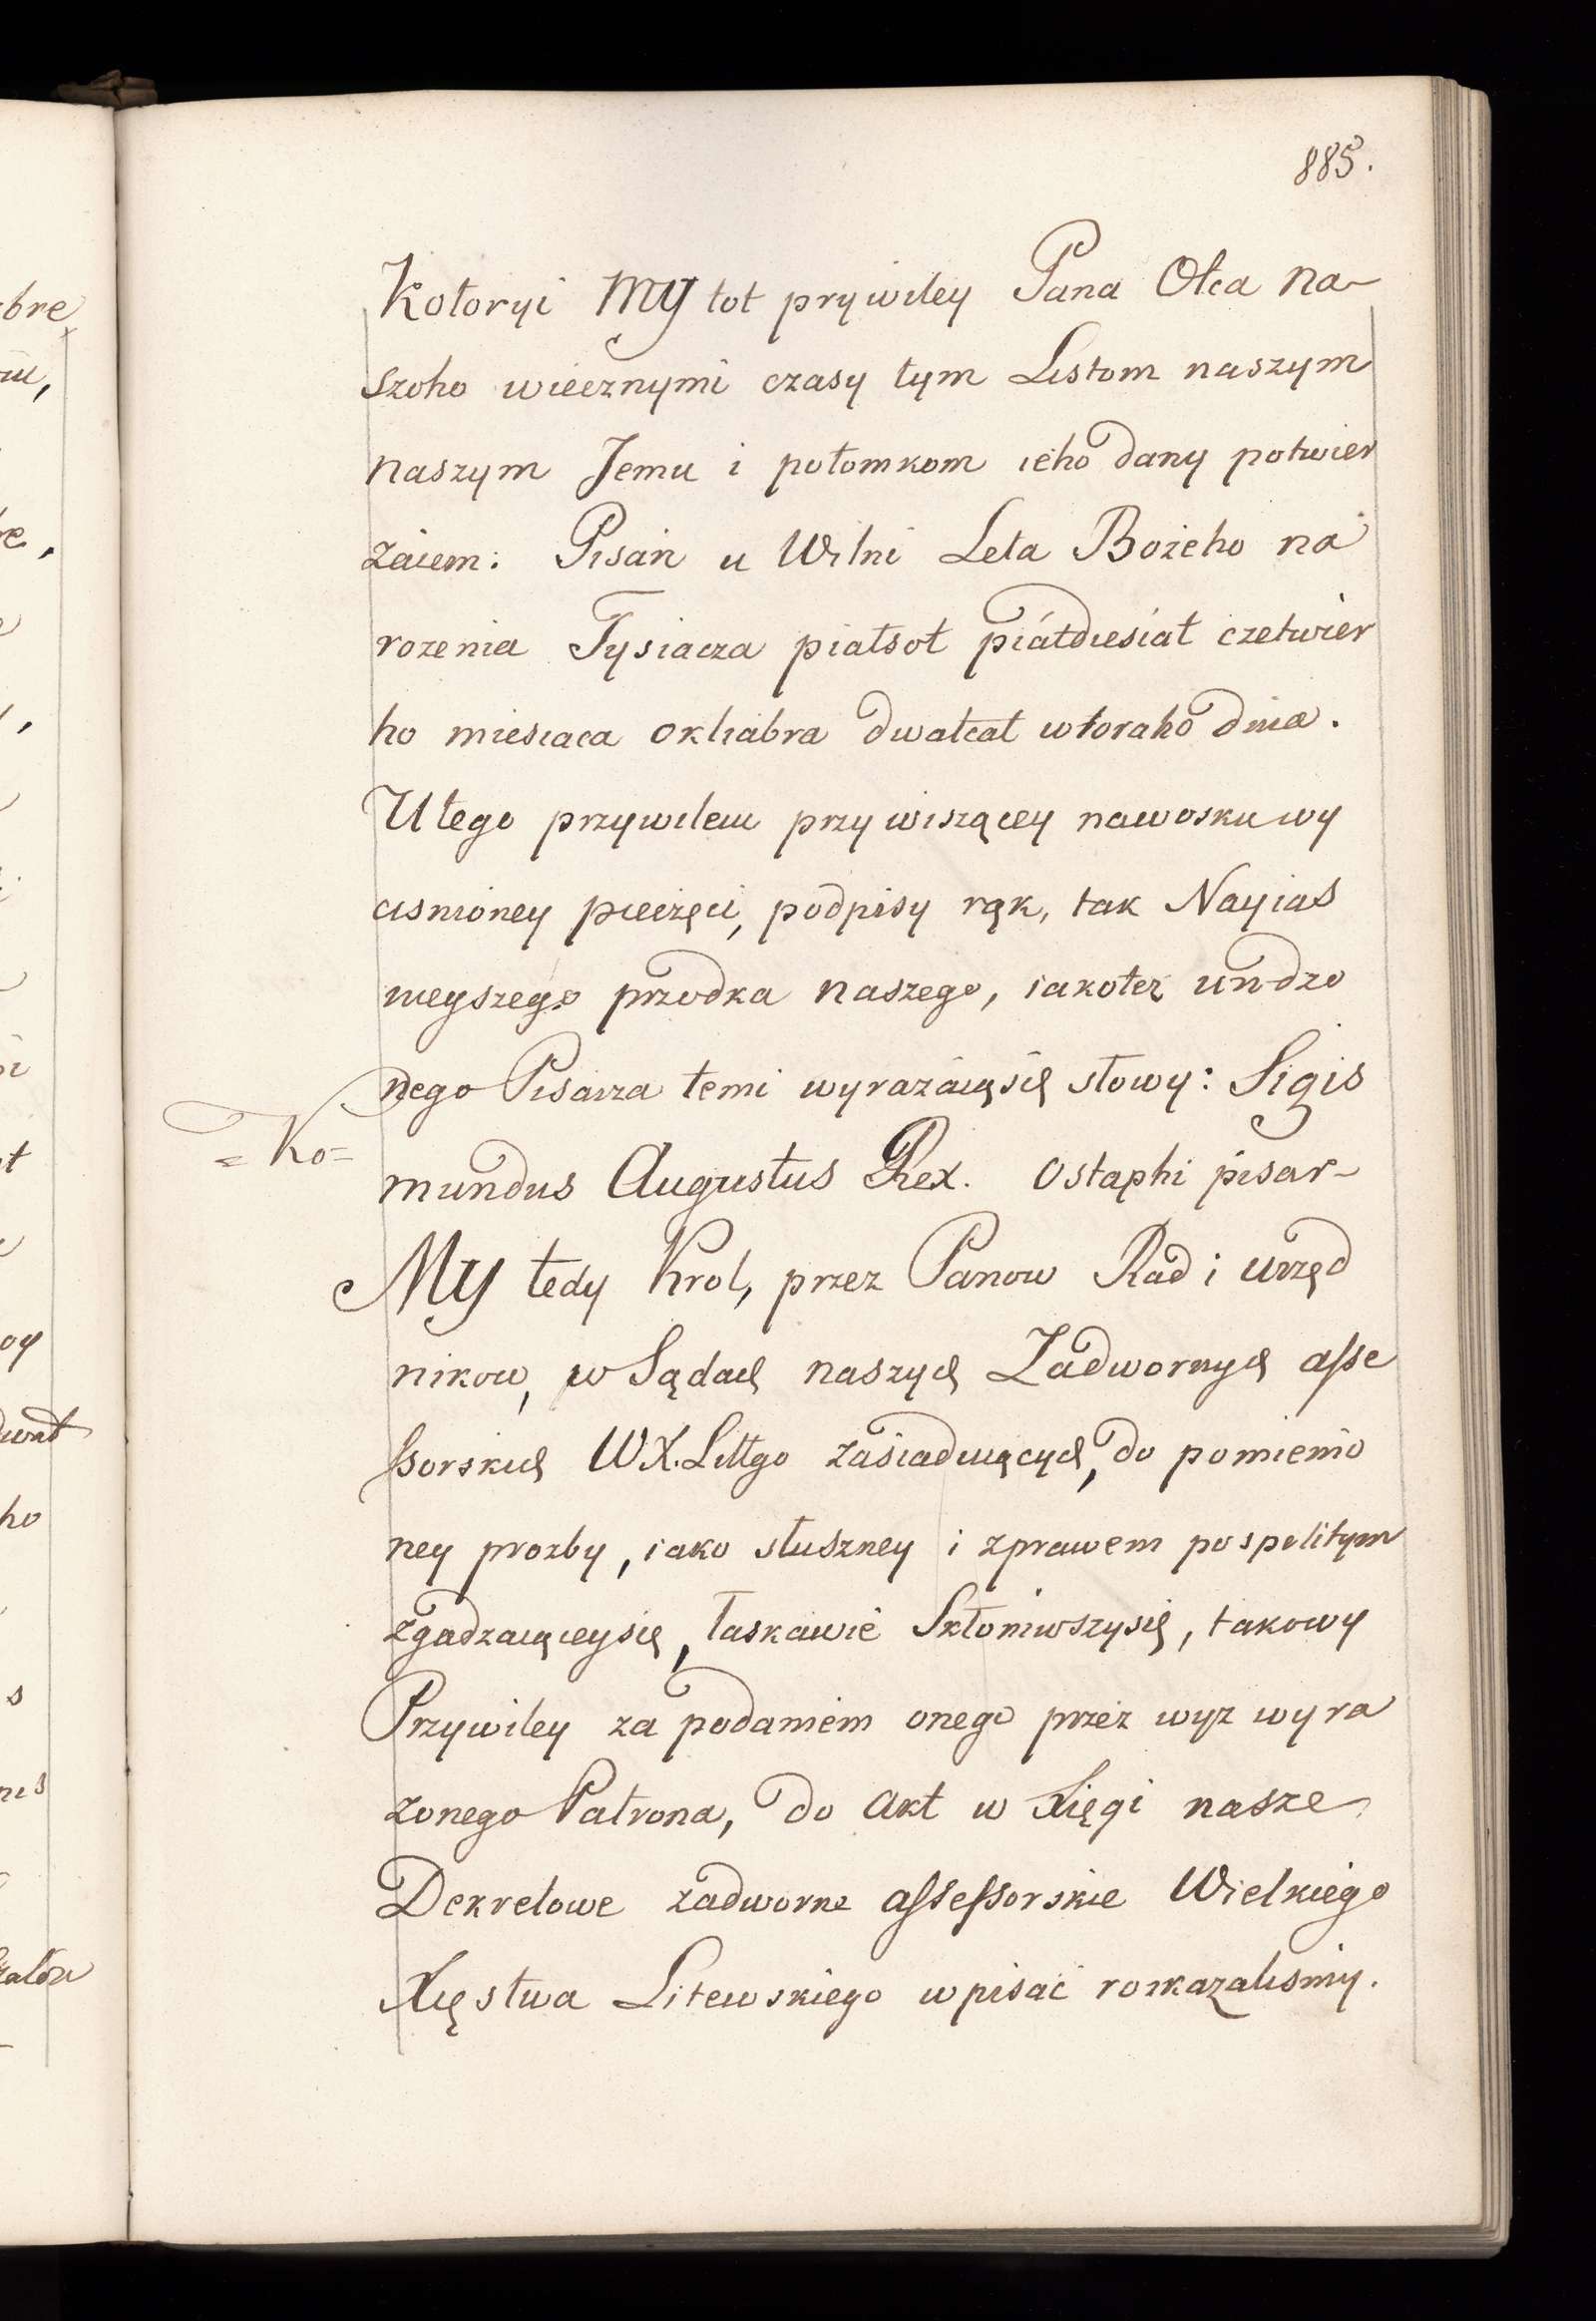 885.
Kotoryi My tot prywiley Pana Otca na-
szoho wiecznymi czasy tym Listom naszym
naszym Jemu i potomkom ieho dany potwier
zaiem: Pisan u Wilni Leta Bożeho na
rozenia Tysiacza piatsot piátdiesiat czetwier
ho miesiaca oktiabra dwatcat wtoraho dnia.
U tego przywileiu przywiszącey nawosku wy
cisnioney pieczęci, podpisy rąk, tak Nayias
nieyszego przodka naszego, iakoteż urzdzo
nego Pisarza temi wyrażaią się słowy: Sigis
= Ko =
mundus Augustus Rex. Ostaphi pisar-
My tedy Krol, przez Panow Rad i urzęd
nikow, w Sądach naszych Zadwornych asse
ssorskich W.X.Littgo zasiadaiących, do pomienio
ney prozby, iako słuszney i zprawem pospolitym
zgadzaiąceysię, łaskawie Skłoniwszysię, takowy
Przywiley za podaniem onego przez wyz wyra
żonego Patrona, do akt w Xięgi nasze
Dekretowe zadworne assessorskie Wielkiego
Xięstwa Litewskiego wpisać roskazalismy.
bre
re,
ho